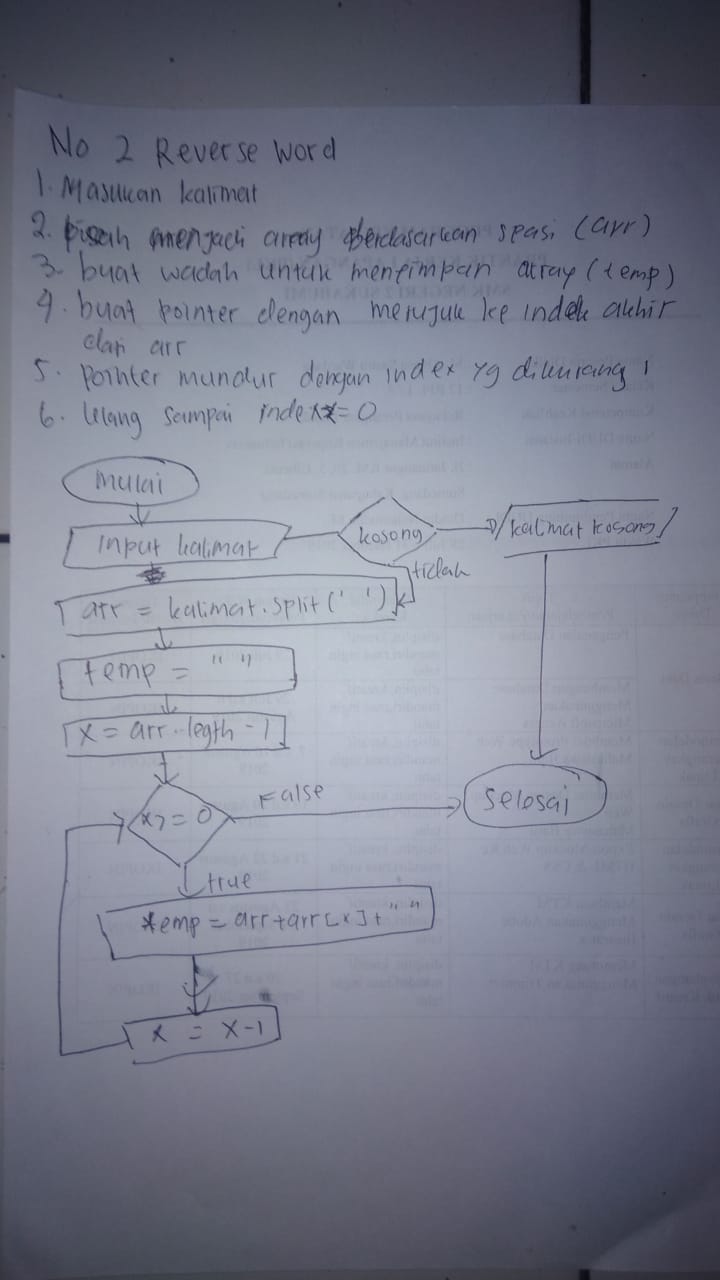 No 2 Reverse Word
1. Masukan kalimat
2. pisah menjadi array berdasarkan spasi (arr)
3. buat wadah untuk menyimpan array (temp)
4. buat pointer dengan merujuk ke indek akhir
dari arr
5. pointer mundur dengan index yg dikurang 1
6. Ulang sampai index = 0
Mulai
Input kalimat
kosong
kalimat kosong
tidak
arr = kalimat.split(' ')
temp = " "
x = arr.legth - 1
x >= 0
False
Selesai
true
temp = arr + arr[x] + " "
x = x-1